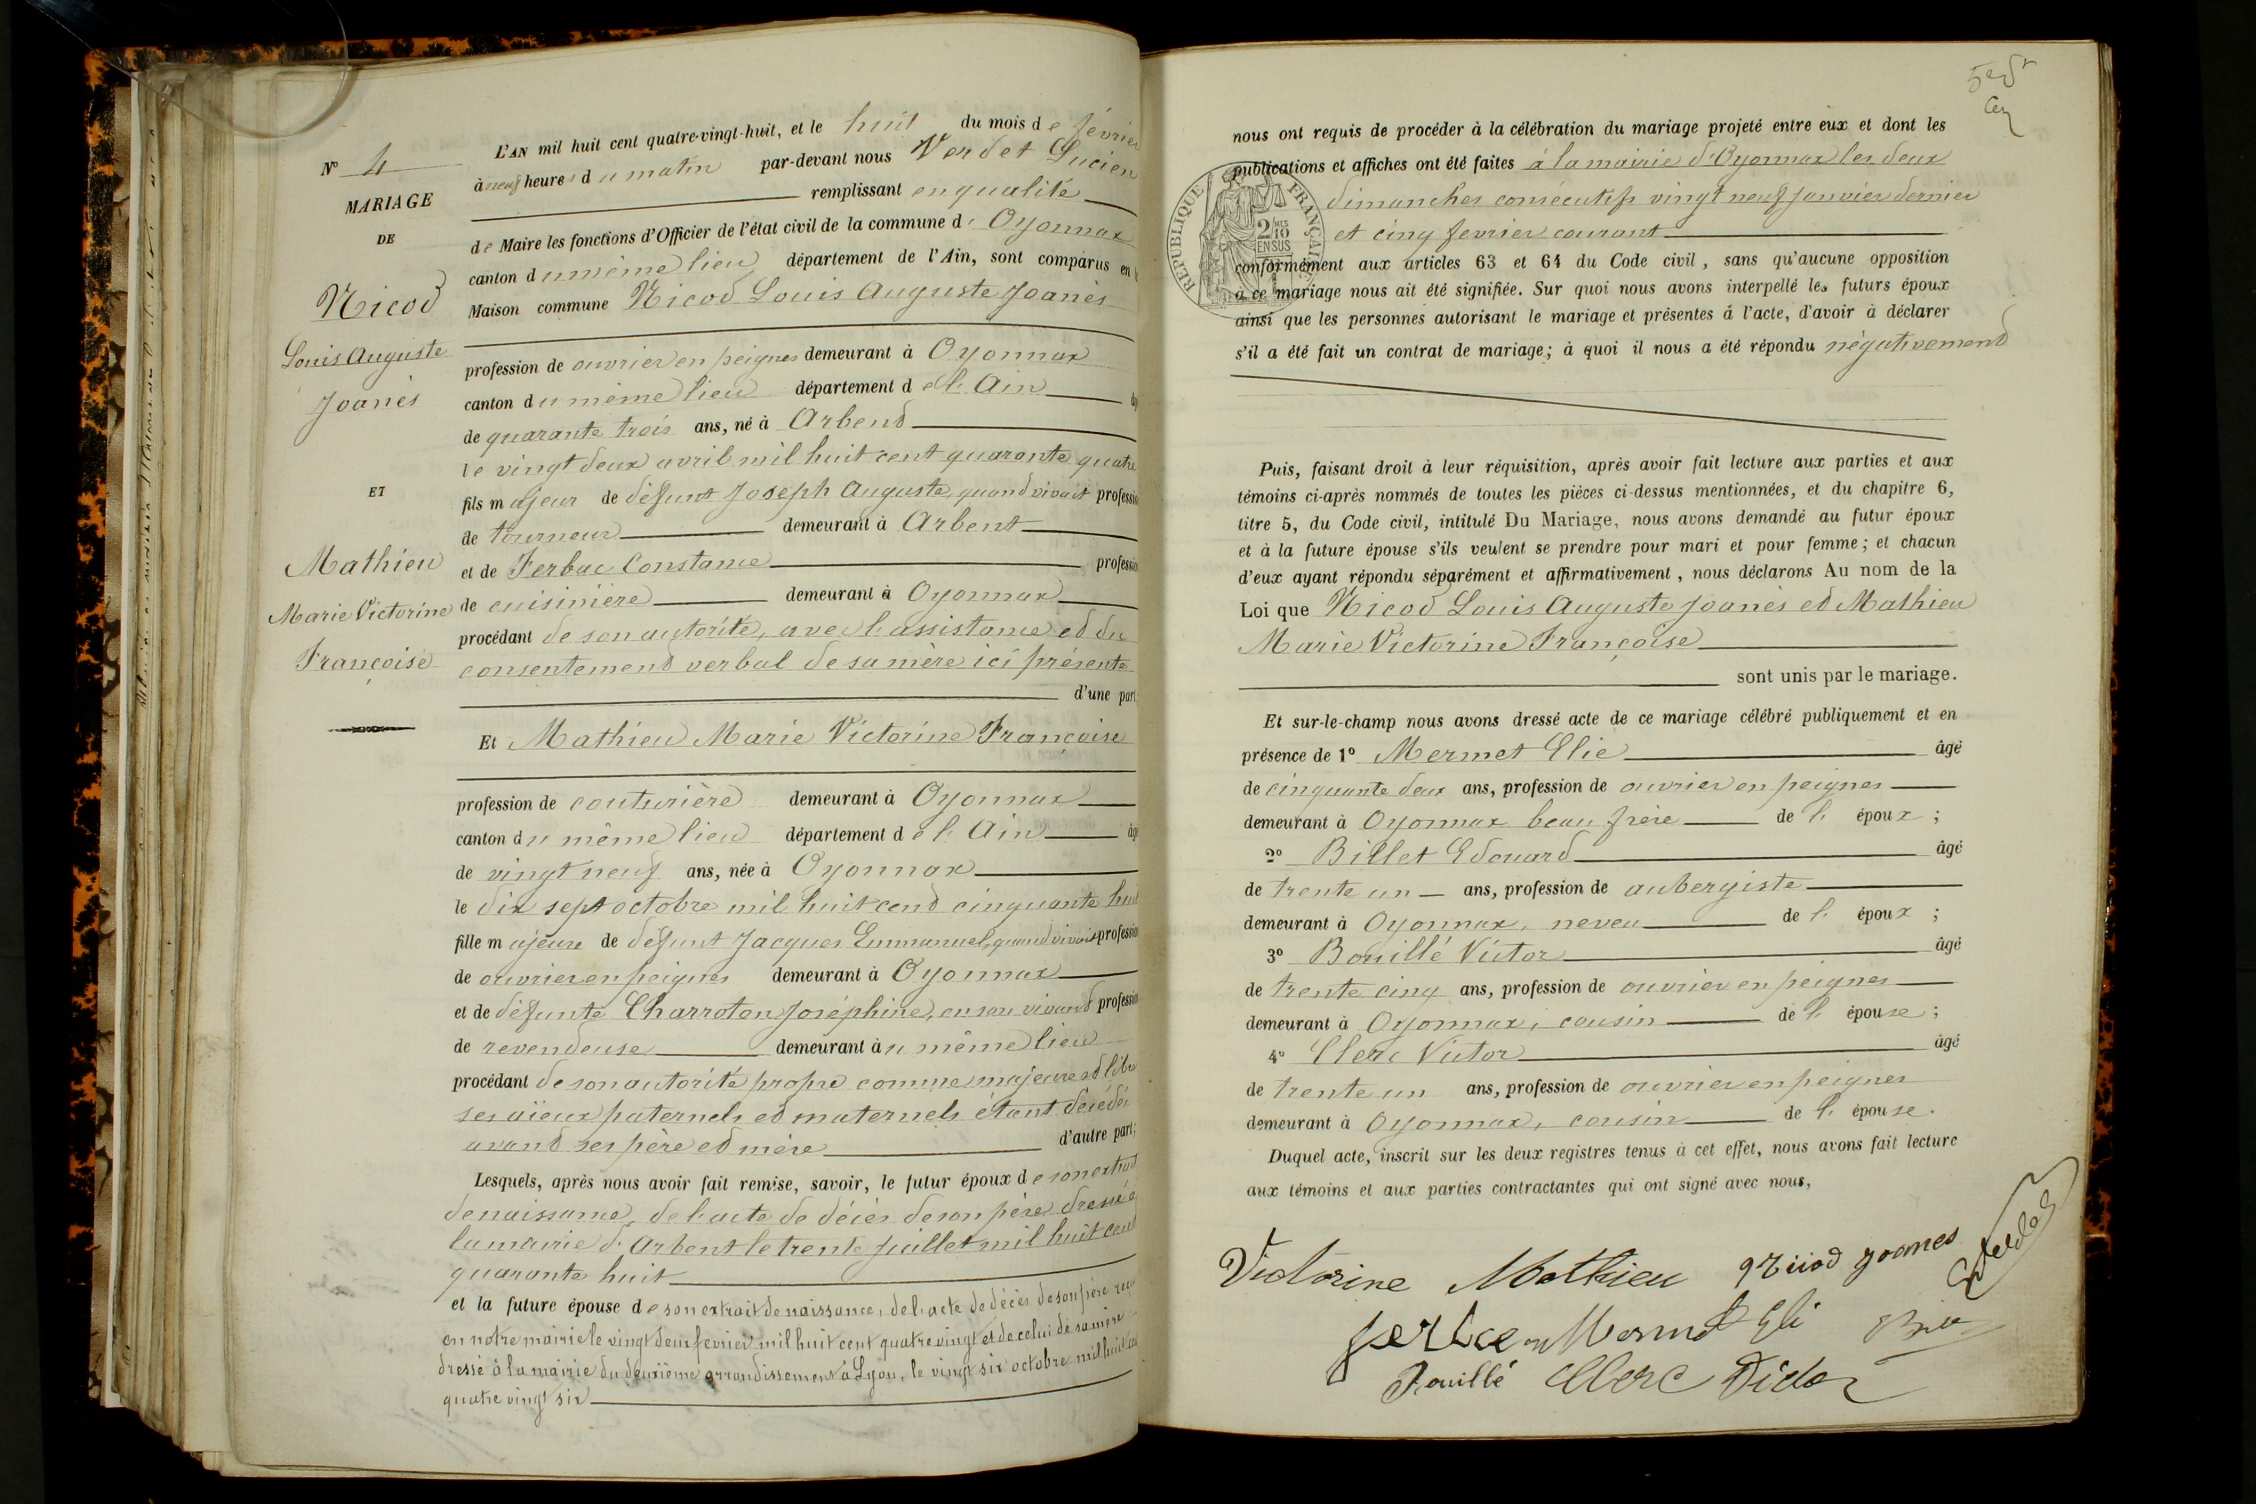 N° 4
MARIAGE
DE
Nicod
Louis Auguste
Joanès
ET
Mathieu
Marie Victorine
Françoise
L'AN mil huit cent quatre-vingt-huit, et le huit du mois de février
à neuf heures du matin par-devant nous Verdet Lucien
remplissant en qualité
de Maire les fonctions d'Officier de l'état civil de la commune d' Oyonnax
canton du même lieu département de l'Ain, sont comparus en
Maison commune Nicod Louis Auguste Joanès
profession de ouvrier en peignes demeurant à Oyonnax
canton du même lieu département de l'Ain
de quarante trois ans, né à Arbent
le vingt deux avril mil huit cent quarante quatre
fils majeur de défunt Joseph Auguste, quand vivait profession
de tourneur demeurant à Arbent
et de Ferbac Constance profession
de cuisinière demeurant à Oyonnax
procédant de son autorité, avec l'assistance et du
consentement verbal de sa mère ici présente
d'une part
Et Mathieu Marie Victorine Françoise
profession de couturière demeurant à Oyonnax
canton du même lieu département de l'Ain
de vingt neuf ans, née à Oyonnax
le dix sept octobre mil huit cent cinquante huit
fille majeure de défunt Jacques Emmanuel, quand vivait profession
de ouvrier en peignes demeurant à Oyonnax
et de défunte Charroton Joséphine, en son vivant profession
de revendeuse demeurant au même lieu
procédant de son autorité propre comme majeure et libre
ses aïeux paternels et maternels étant décédés
avant ses père et mère d'autre part;
Lesquels, après nous avoir fait remise, savoir, le futur époux de son extrait
de naissance, de l'acte de décès de son père dressé à
la mairie d'Arbent le trente juillet mil huit cent
quarante huit
et la future épouse de son extrait de naissance, de l'acte de décès de son père reçu
en notre mairie le vingt deux fevrier mil huit cent quatre vingt et de celui de sa mère
dressé à la mairie du deuxième arrondissement à Lyon, le vingt six octobre mil huit cent
quatre vingt six
nous ont requis de procéder à la célébration du mariage projeté entre eux et dont les
publications et affiches ont été faites à la mairie d'Oyonnax les deux
dimanches consécutifs vingt neuf janvier dernier
et cinq fevrier courant
conformément aux articles 63 et 64 du Code civil, sans qu'aucune opposition
à ce mariage nous ait été signifiée. Sur quoi nous avons interpellé les futurs époux
ainsi que les personnes autorisant le mariage et présentes à l'acte, d'avoir à déclarer
s'il a été fait un contrat de mariage; à quoi il nous a été répondu négativement
RÉPUBLIQUE FRANÇAISE
2/10
EN SUS
Puis, faisant droit à leur réquisition, après avoir fait lecture aux parties et aux
témoins ci-après nommés de toutes les pièces ci-dessus mentionnées, et du chapitre 6,
titre 5, du Code civil, intitulé Du Mariage, nous avons demandé au futur époux
et à la future épouse s'ils veulent se prendre pour mari et pour femme; et chacun
d'eux ayant répondu séparément et affirmativement, nous déclarons Au nom de la
Loi que Nicod Louis Auguste Joanès et Mathieu
Marie Victorine Françoise
sont unis par le mariage.
Et sur-le-champ nous avons dressé acte de ce mariage célébré publiquement et en
présence de 1° Mermet Elie âgé
de cinquante deux ans, profession de ouvrier en peignes
demeurant à Oyonnax beau frère de l'époux;
2° Billet Edouard âgé
de trente un ans, profession de aubergiste
demeurant à Oyonnax, neveu de l'époux;
3° Bouillé Victor âgé
de trente cinq ans, profession de ouvrier en peignes
demeurant à Oyonnax, cousin de l'épouse;
4° Clerc Victor âgé
de trente un ans, profession de ouvrier en peignes
demeurant à Oyonnax, cousin de l'épouse.
Duquel acte, inscrit sur les deux registres tenus à cet effet, nous avons fait lecture
aux témoins et aux parties contractantes qui ont signé avec nous,
Victorine Mathieu Nicod Joanes
Mermet Eli
Bouillé Clerc Victor